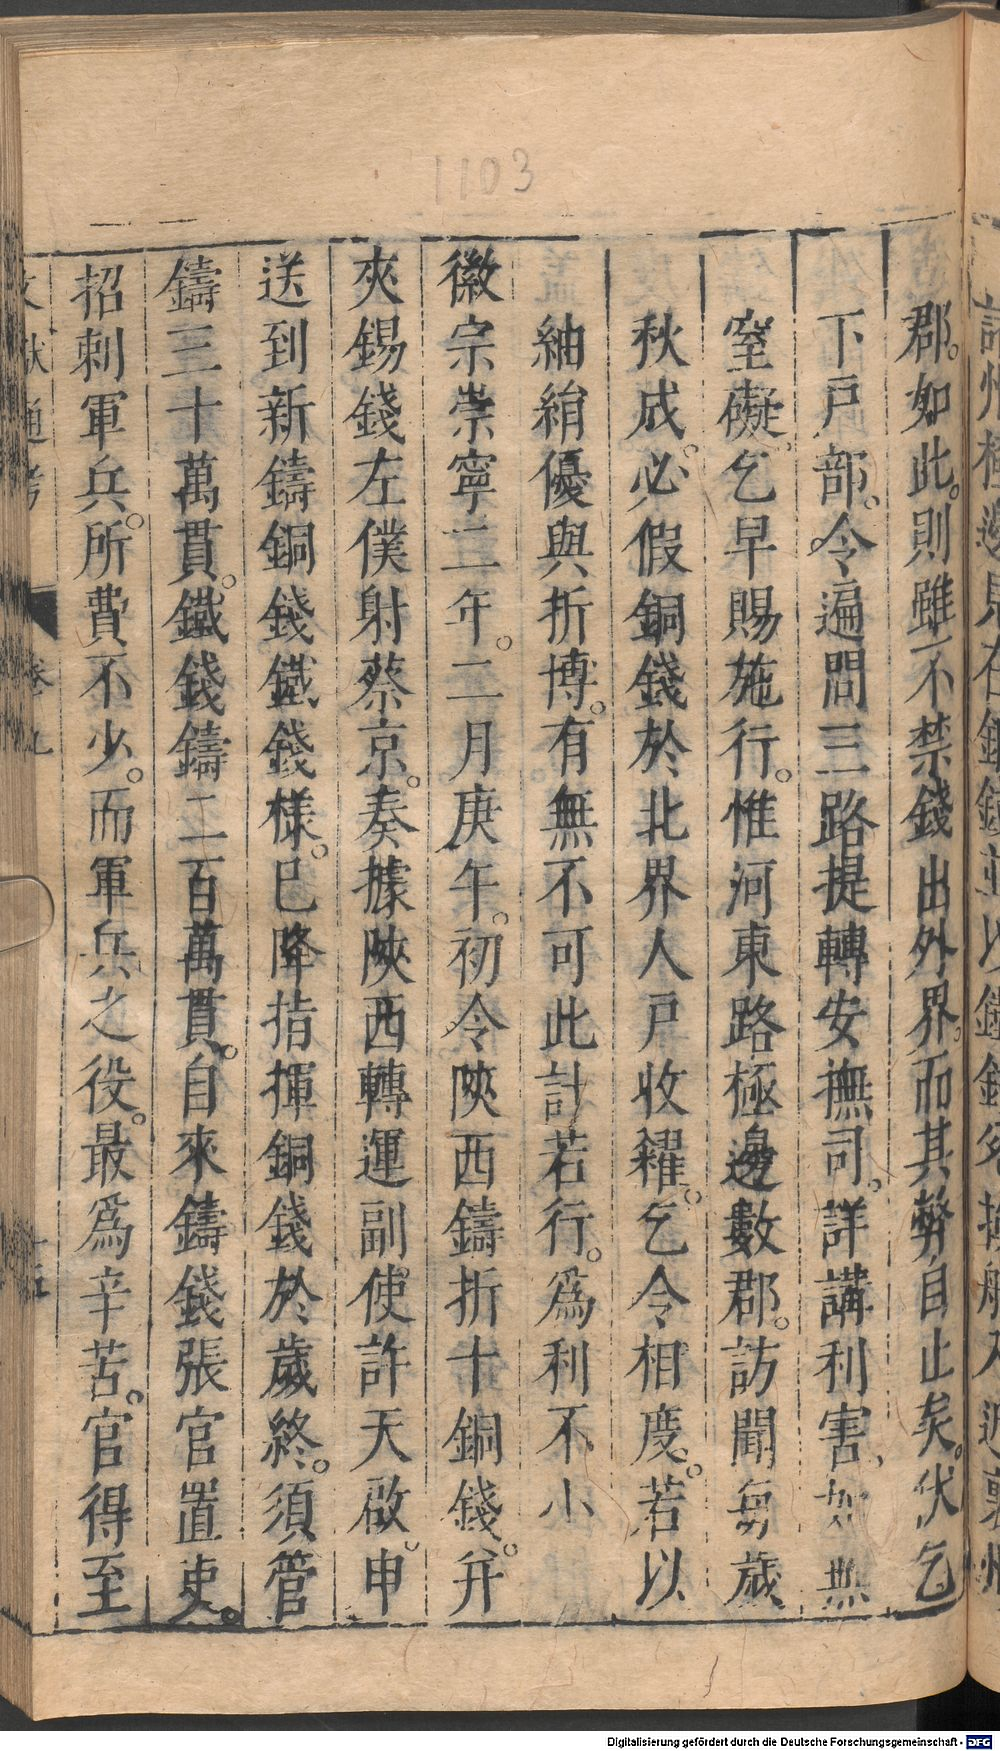 1103
郡。如此。則雖不禁錢出外界。而其弊自止矣。伏乞
下戶部。令遍問三路提轉安撫司。詳講利害、如無
窒礙、乞早賜施行。惟河東路極邊數郡。訪聞每歲
秋成。必假銅錢於北界人戶收糴。乞令相度。若以
紬絹優與折博。有無不可此計若行。爲利不小
徽宗崇寧二年。二月庚午。初令陝西鑄折十銅錢。幷
夾錫錢左僕射蔡京。奏據陝西轉運副使許天啟。申
送到新鑄銅錢鐵錢樣。已降指揮銅錢於歲終。須管
鑄三十萬貫。鐵錢鑄二百萬貫。自來鑄錢張官置吏。
招刺軍兵。所費不少。而軍兵之役。最爲辛苦。官得至
文獻通考 卷九
Digitalisierung gefördert durch die Deutsche Forschungsgemeinschaft - DFG